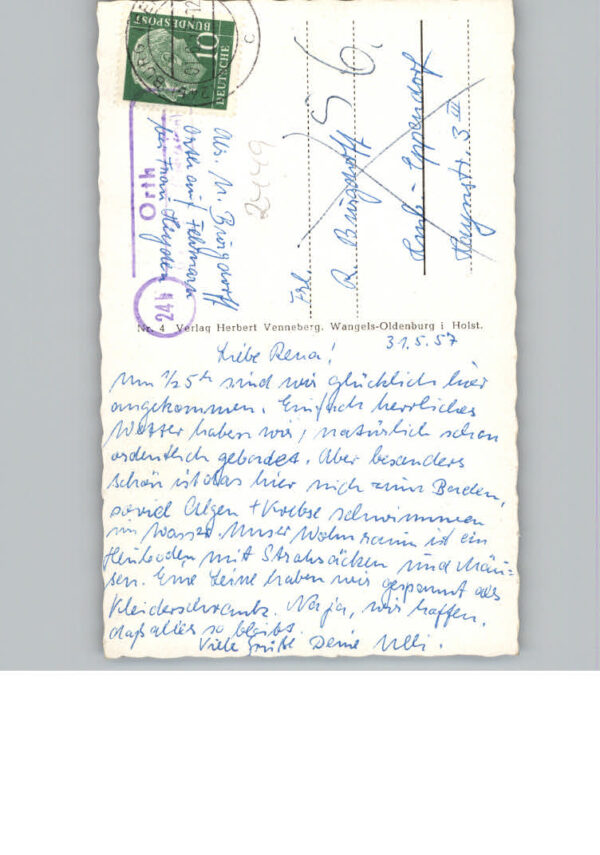 10
DEUTSCHE
BUNDESPOST
BURG
Orth
24b
Abs. U. Burgdorff
Orth auf Fehmarn
bei Frau Heyden
2449
56.
Frl.
R. Burgdorff
Hmb-Eppendorf
Haynstr. 3 III
Nr. 4 Verlag Herbert Venneberg, Wangels-Oldenburg i Holst.
31.5.57
Liebe Rena!
Um ½5h sind wir glücklich hier
angekommen. Einfach herrliches
Wetter haben wir, natürlich schon
ordentlich gebadet. Aber besonders
schön ist das hier nich zum Baden,
soviel Algen + Krebse schwimmen
im Wasser. Unser Wohnraum ist ein
Heuboden mit Strohsäcken und Mäu-
sen. Eine Leine haben wir gespannt als
Kleiderschrank. Na ja, wir hoffen,
daß alles so bleibt.
Viele Grüße Deine Ulli.